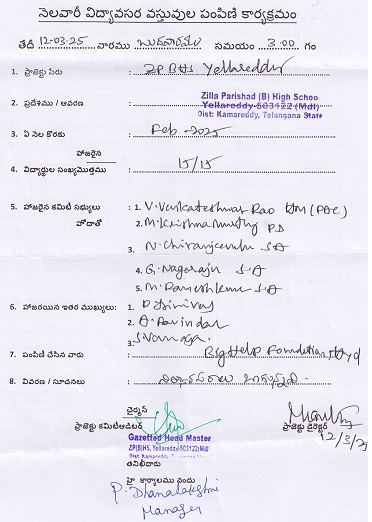 నెలవారీ విద్యావసర వస్తువుల పంపిణీ కార్యక్రమం
తేదీ 12-03-25 వారము బుధవారము సమయం 3.00 గం
1. ప్రాజెక్టు పేరు : ZPBHS Yellareddy
2. ప్రదేశము / ఆవరణ : Zilla Parishad (B) High School
Yellareddy-503122 (Mdl)
Dist: Kamareddy, Telangana State
3. ఏ నెల కొరకు : Feb - 2025
హాజరైన
4. విద్యార్థుల సంఖ్య మొత్తము : 15/15
5. హాజరైన కమిటీ సభ్యులు : 1. V. Venkateshwar Rao HM (PAC)
హోదాతో 2. M. Krishnamurthy PD
3. N. Chiranjeevulu S.A
4. G. Nagaraju S.A
5. M. Rameshkumar S.A
6. హాజరయిన ఇతర ముఖ్యులు: 1. P. Srinivas
2. A. Ravinder
3.
7. పంపిణీ చేసిన వారు : BigHelp Foundation Hyd
8. వివరణ / సూచనలు :
చైర్మన్
ప్రాజెక్టు కమిటీఆడిటర్ ప్రాజెక్టు డైరెక్టర్
12/3/25
Gazetted Head Master
ZP(B)HS, Yellareddy-503122(Mdl)
Dist: Kamareddy,
తనిఖీదారు
హై కార్యాలము నందు
P. Dhanalakshmi
Manager